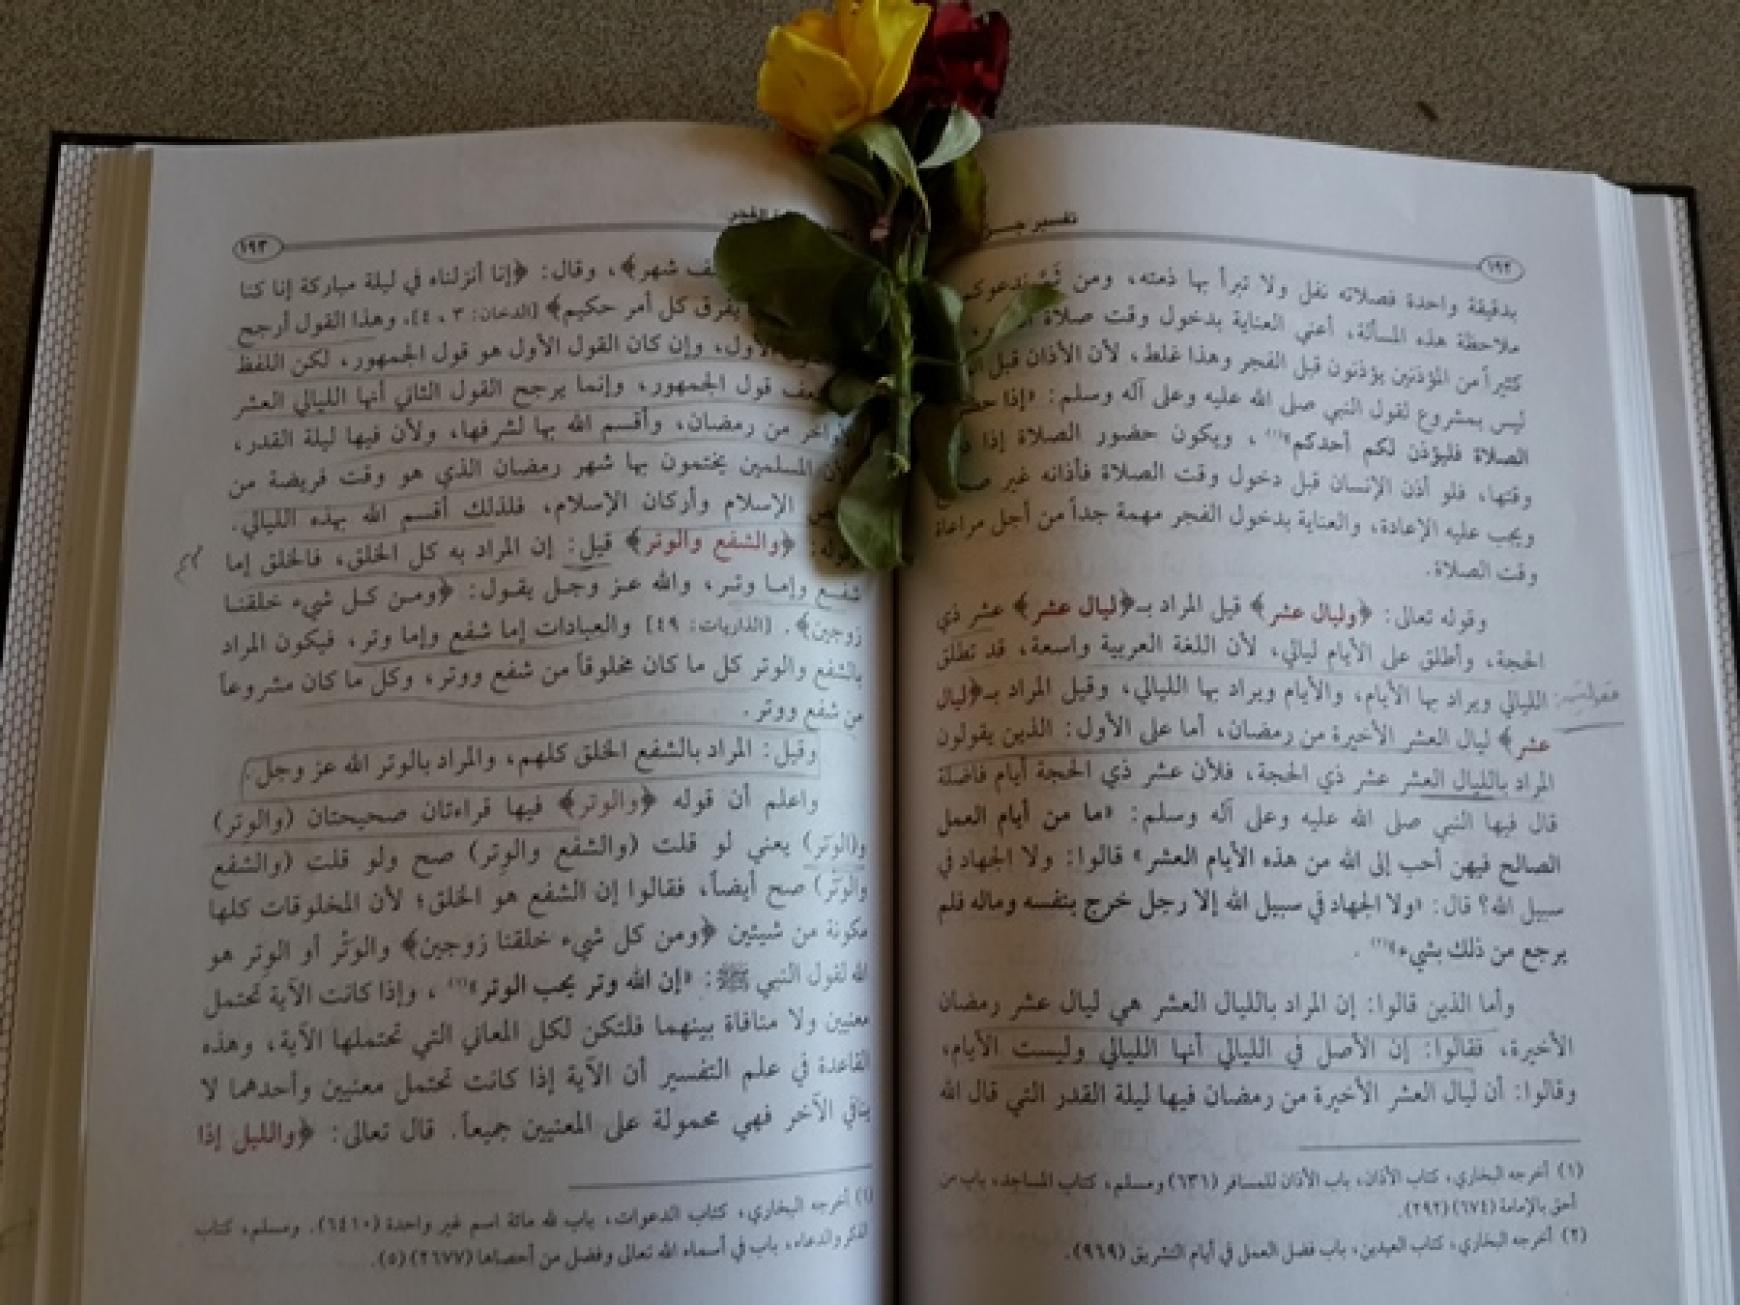 تفسير جـ
١٩٢
بدقيقة واحدة فصلاته نفل ولا تبرأ بها ذمته، ومن ثَمَّ ندعوكم
ملاحظة هذه المسألة، أعني العناية بدخول وقت صلاة
كثيراً من المؤذنين يؤذنون قبل الفجر وهذا غلط، لأن الأذان قبل
ليس بمشروع لقول النبي صلى الله عليه وعلى آله وسلم: «إذا
الصلاة فليؤذن لكم أحدكم»(١)، ويكون حضور الصلاة إذا
وقتها، فلو أذن الإنسان قبل دخول وقت الصلاة فأذانه غير
ويجب عليه الإعادة، والعناية بدخول الفجر مهمة جداً من أجل مراعاة
وقت الصلاة.
وقوله تعالى: ﴿وليال عشر﴾ قيل المراد بـ﴿ليال عشر﴾ عشر ذي
الحجة، وأطلق على الأيام ليالي، لأن اللغة العربية واسعة، قد تطلق
الليالي ويراد بها الأيام، والأيام ويراد بها الليالي، وقيل المراد بـ﴿ليال
عشر﴾ ليال العشر الأخيرة من رمضان، أما على الأول: الذين يقولون
المراد بالليال العشر عشر ذي الحجة، فلأن عشر ذي الحجة أيام فاضلة
قال فيها النبي صلى الله عليه وعلى آله وسلم: «ما من أيام العمل
الصالح فيهن أحب إلى الله من هذه الأيام العشر» قالوا: ولا الجهاد في
سبيل الله؟ قال: «ولا الجهاد في سبيل الله إلا رجل خرج بنفسه وماله فلم
يرجع من ذلك بشيء»(٢).
وأما الذين قالوا: إن المراد بالليال العشر هي ليال عشر رمضان
الأخيرة، فقالوا: إن الأصل في الليالي أنها الليالي وليست الأيام،
وقالوا: أن ليال العشر الأخيرة من رمضان فيها ليلة القدر التي قال الله
(١) أخرجه البخاري، كتاب الأذان، باب الأذان للمسافر (٦٣١) ومسلم، كتاب المساجد، باب من
أحق بالإمامة (٦٧٤) (٢٩٢).
(٢) أخرجه البخاري، كتاب العيدين، باب فضل العمل في أيام التشريق (٩٦٩).
الفجر
١٩٣
شهر﴾، وقال: ﴿إنا أنزلناه في ليلة مباركة إنا كنا
يفرق كل أمر حكيم﴾ [الدخان: ٣، ٤]، وهذا القول أرجح
الأول، وإن كان القول الأول هو قول الجمهور، لكن اللفظ
قول الجمهور، وإنما يرجح القول الثاني أنها الليالي العشر
من رمضان، وأقسم الله بها لشرفها، ولأن فيها ليلة القدر،
المسلمين يختمون بها شهر رمضان الذي هو وقت فريضة من
الإسلام وأركان الإسلام، فلذلك أقسم الله بهذه الليالي.
﴿والشفع والوتر﴾ قيل: إن المراد به كل الخلق، فالخلق إما
شفع وإما وتر، والله عز وجل يقول: ﴿ومن كل شيء خلقنا
زوجين﴾. [الذاريات: ٤٩] والعبادات إما شفع وإما وتر، فيكون المراد
بالشفع والوتر كل ما كان مخلوقاً من شفع ووتر، وكل ما كان مشروعاً
من شفع ووتر.
وقيل: المراد بالشفع الخلق كلهم، والمراد بالوتر الله عز وجل.
واعلم أن قوله ﴿والوتر﴾ فيها قراءتان صحيحتان (والوِتر)
و(الوَتر) يعني لو قلت (والشفع والوِتر) صح ولو قلت (والشفع
والوَتْر) صح أيضاً، فقالوا إن الشفع هو الخلق؛ لأن المخلوقات كلها
مكونة من شيئين ﴿ومن كل شيء خلقنا زوجين﴾ والوَتْر أو الوِتر هو
الله لقول النبي ﷺ: «إن الله وتر يحب الوتر»(١)، وإذا كانت الآية تحتمل
معنيين ولا منافاة بينهما فلتكن لكل المعاني التي تحتملها الآية، وهذه
القاعدة في علم التفسير أن الآية إذا كانت تحتمل معنيين وأحدهما لا
ينافي الآخر فهي محمولة على المعنيين جميعاً. قال تعالى: ﴿والليل إذا
(١) أخرجه البخاري، كتاب الدعوات، باب لله مائة اسم غير واحدة (٦٤١٠). ومسلم، كتاب
الذكر والدعاء، باب في أسماء الله تعالى وفضل من أحصاها (٢٦٧٧) (٥).